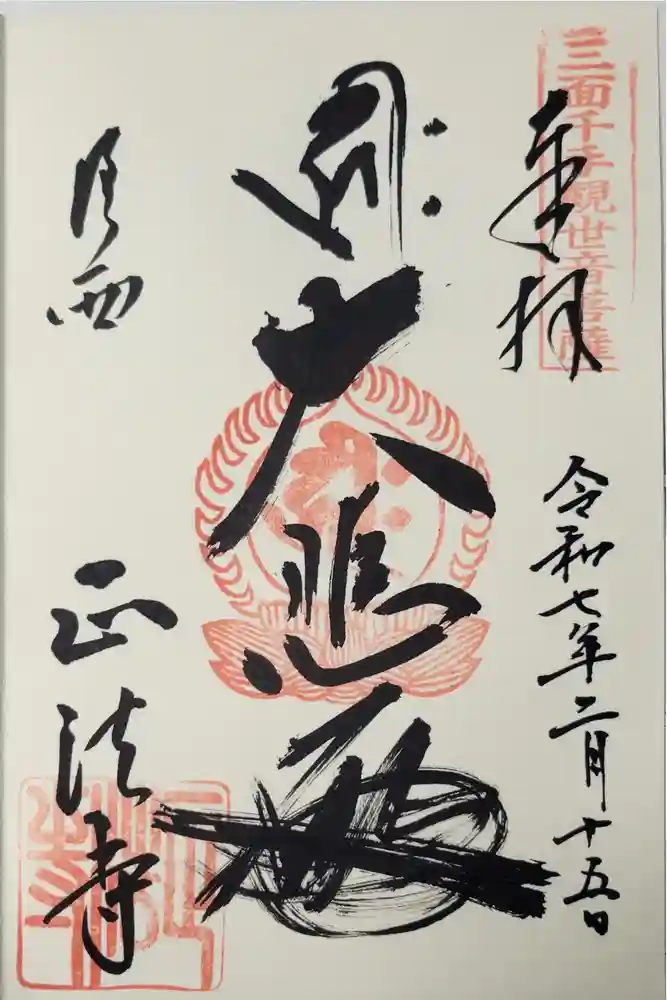 三面千手観世音菩薩
奉拝
令和七年二月十五日
大悲殿
洛西
正法寺